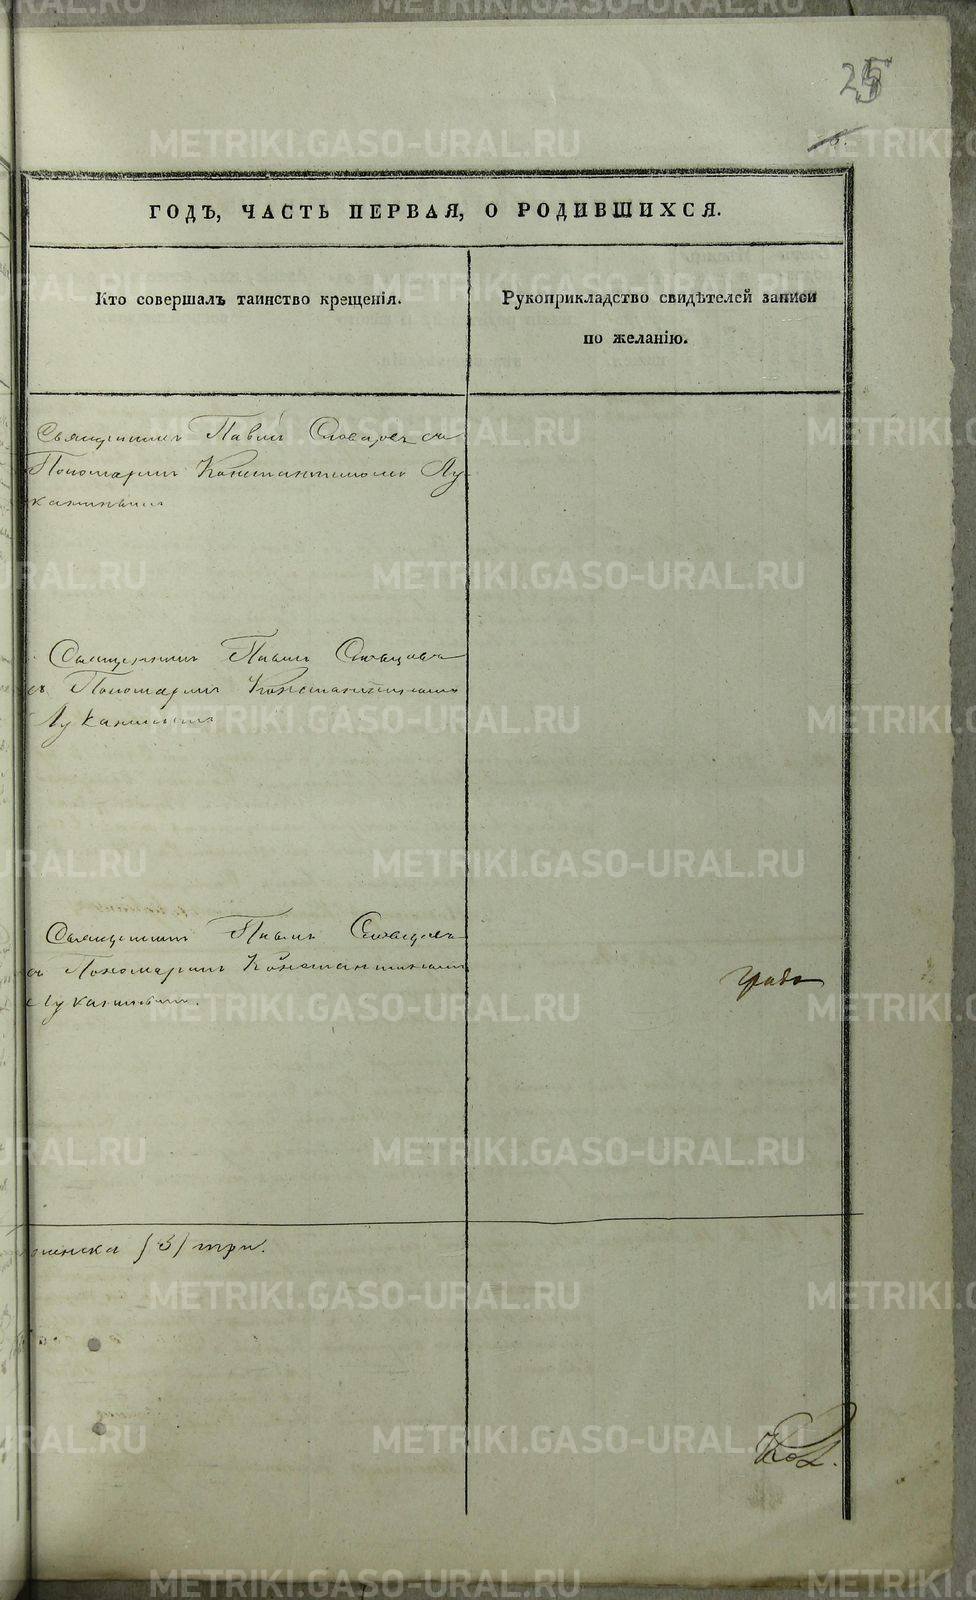 25
ГОДЪ, ЧАСТЬ ПЕРВАЯ, О РОДИВШИХСЯ.
Кто совершалъ таинство крещенія.
Рукоприкладство свидѣтелей записи
по желанію.
Священникъ Павелъ Словцовъ съ
Пономаремъ Константиномъ Лу-
канинымъ
Священникъ Павелъ Словцовъ
съ Пономаремъ Константиномъ
Луканинымъ
Священникъ Павелъ Словцовъ
съ Пономаремъ Константиномъ
Луканинымъ.
града
женска (3) три.
METRIKI.GASO-URAL.RU